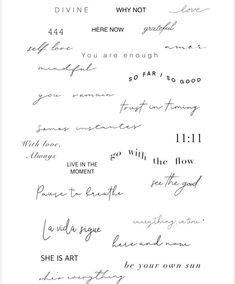 DIVINE
WHY NOT
love
444
HERE NOW
grateful
self love
amar
You are enough
mindful
SO FAR I SO GOOD
you
trust in timing
Somos instantes
11:11
With love,
Always
go with the flow
LIVE IN THE
MOMENT
see the good
Pause to breathe
everything in time
La vida sigue
here and now
SHE IS ART
be your own sun
she's everything